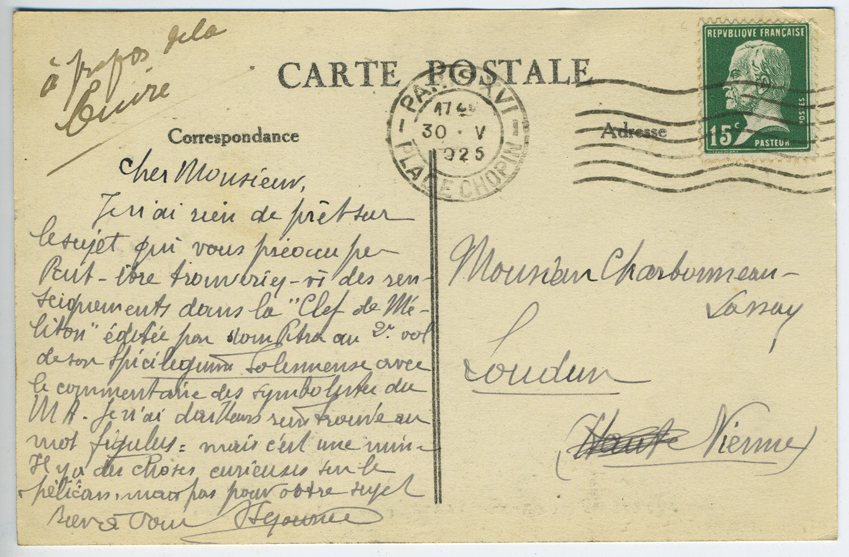 à propos de la
Cuire
CARTE POSTALE
Correspondance
Adresse
REPUBLIQUE FRANÇAISE
POSTES
15c
PASTEUR
PARIS XVI
17
30 · V
1925
PLACE CHOPIN
Cher Monsieur,
Je n'ai rien de prêt sur
le sujet qui vous préoccupe
Peut-être trouveriez-vs des ren-
seignements dans la "Clef de Mé-
liton" éditée par dom Pitra au 2e vol
de son Spicilegium Solesmense avec
le commentaire des symbolistes du
MA. Je n'ai d'ailleurs rien trouvé au
mot figulus = mais c'est une mine
Il y a des choses curieuses sur le
pélican, mais pas pour votre sujet
bien à vous
Monsieur Charbonneau-
Lassay
Loudun
(Haute Vienne)